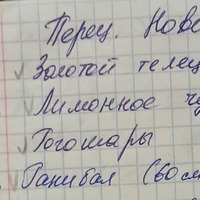 Перец. Ново
Золотой телец
Лимонное чу
Гогошары
Ганибал (60 см